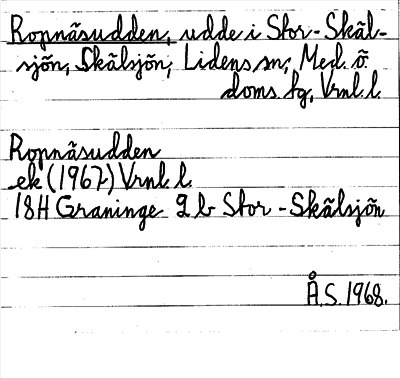 Ropnäsudden, udde i Stor-Skäl-
sjön, Skälsjön, Lidens sn; Med. ö.
doms. tg, Vrnl. l.
Ropnäsudden
ek (1967) Vrnl. l.
18H Graninge 9 b Stor-Skälsjön
Å.S. 1968.